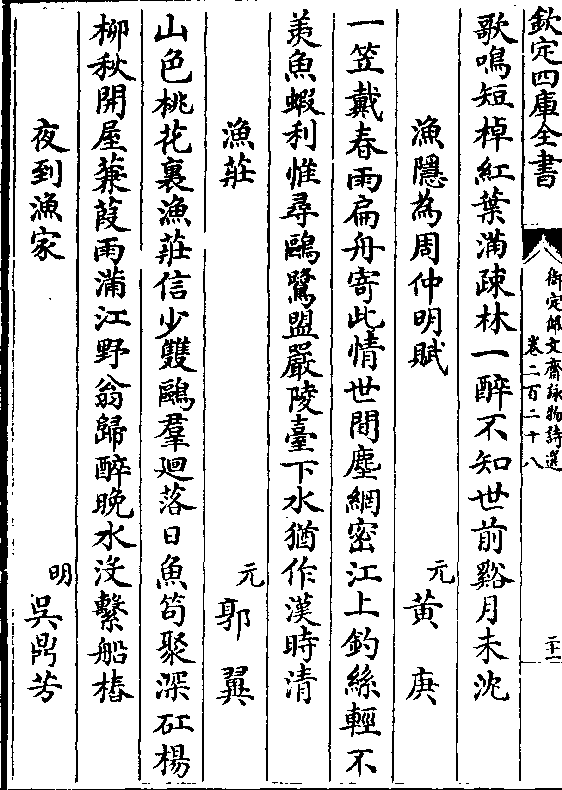 欽定四庫全書
御定佩文齋詠物詩選
卷二百二十八
二十一
歌鳴短棹紅葉滿疎林一醉不知世前谿月未沈
漁隱為周仲明賦
元 黄庚
一笠戴春雨扁舟寄此情世間塵網密江上釣絲輕不
羨魚蝦利惟尋鷗鷺盟嚴陵臺下水猶作漢時清
漁莊
元 郭翼
山色桃花裏漁莊信少雙鷗羣廻落日魚笱聚深矼楊
柳秋開屋蒹葭雨滿江野翁歸醉晚水沒繫船樁
夜到漁家
明 吳鼎芳